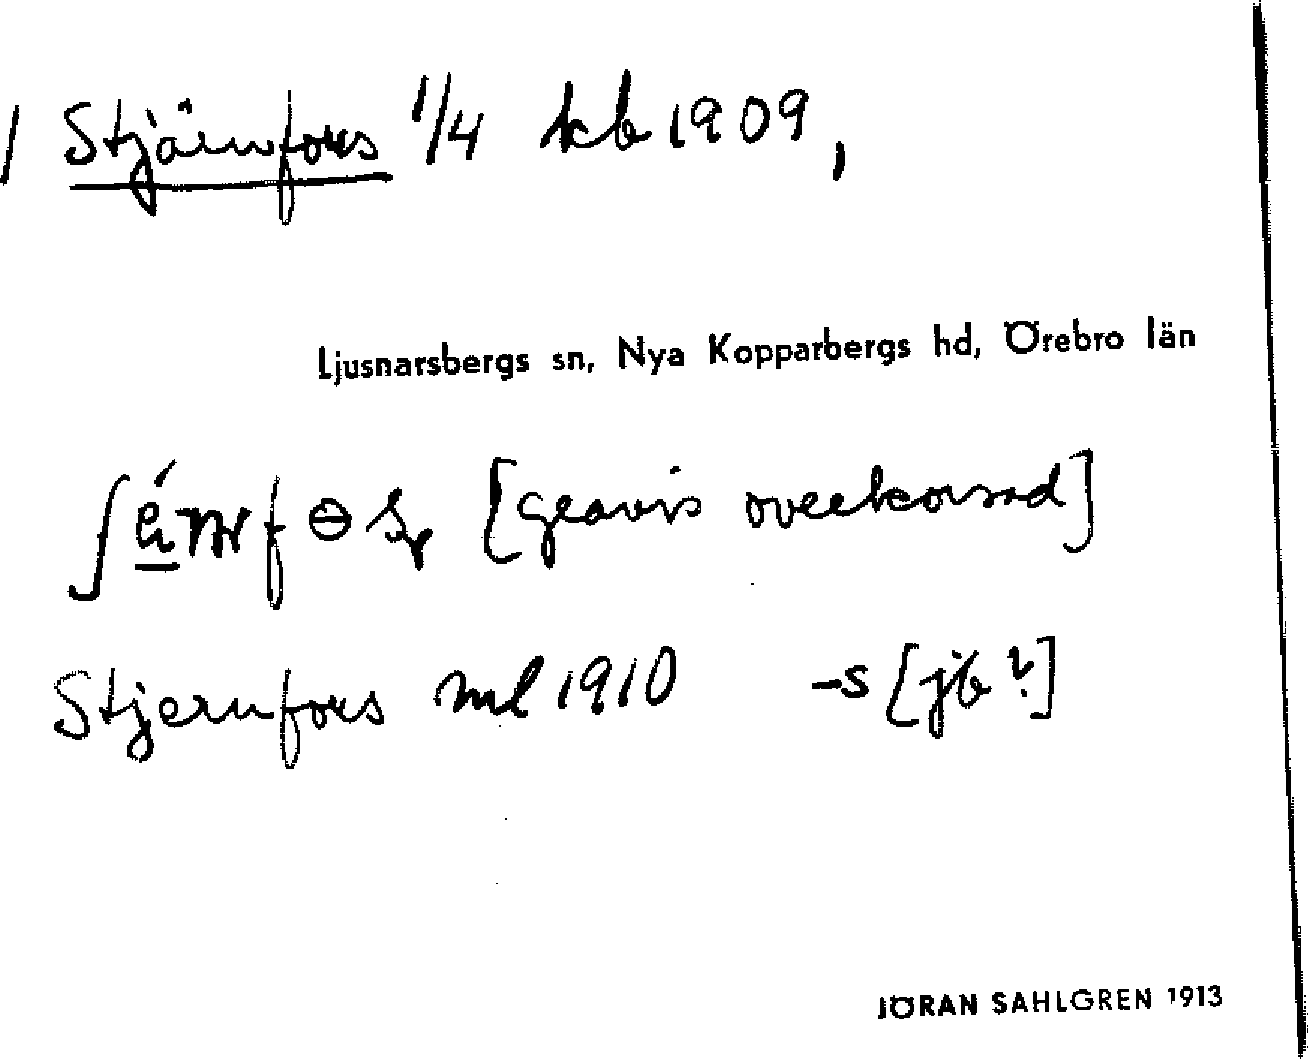 / Stjärnfors 1/4 kb 1909,
Ljusnarsbergs sn, Nya Kopparbergs hd, Örebro län
[gravis överkorsad]
Stjernfors ml 1910 -s [jb?]
JÖRAN SAHLGREN 1913